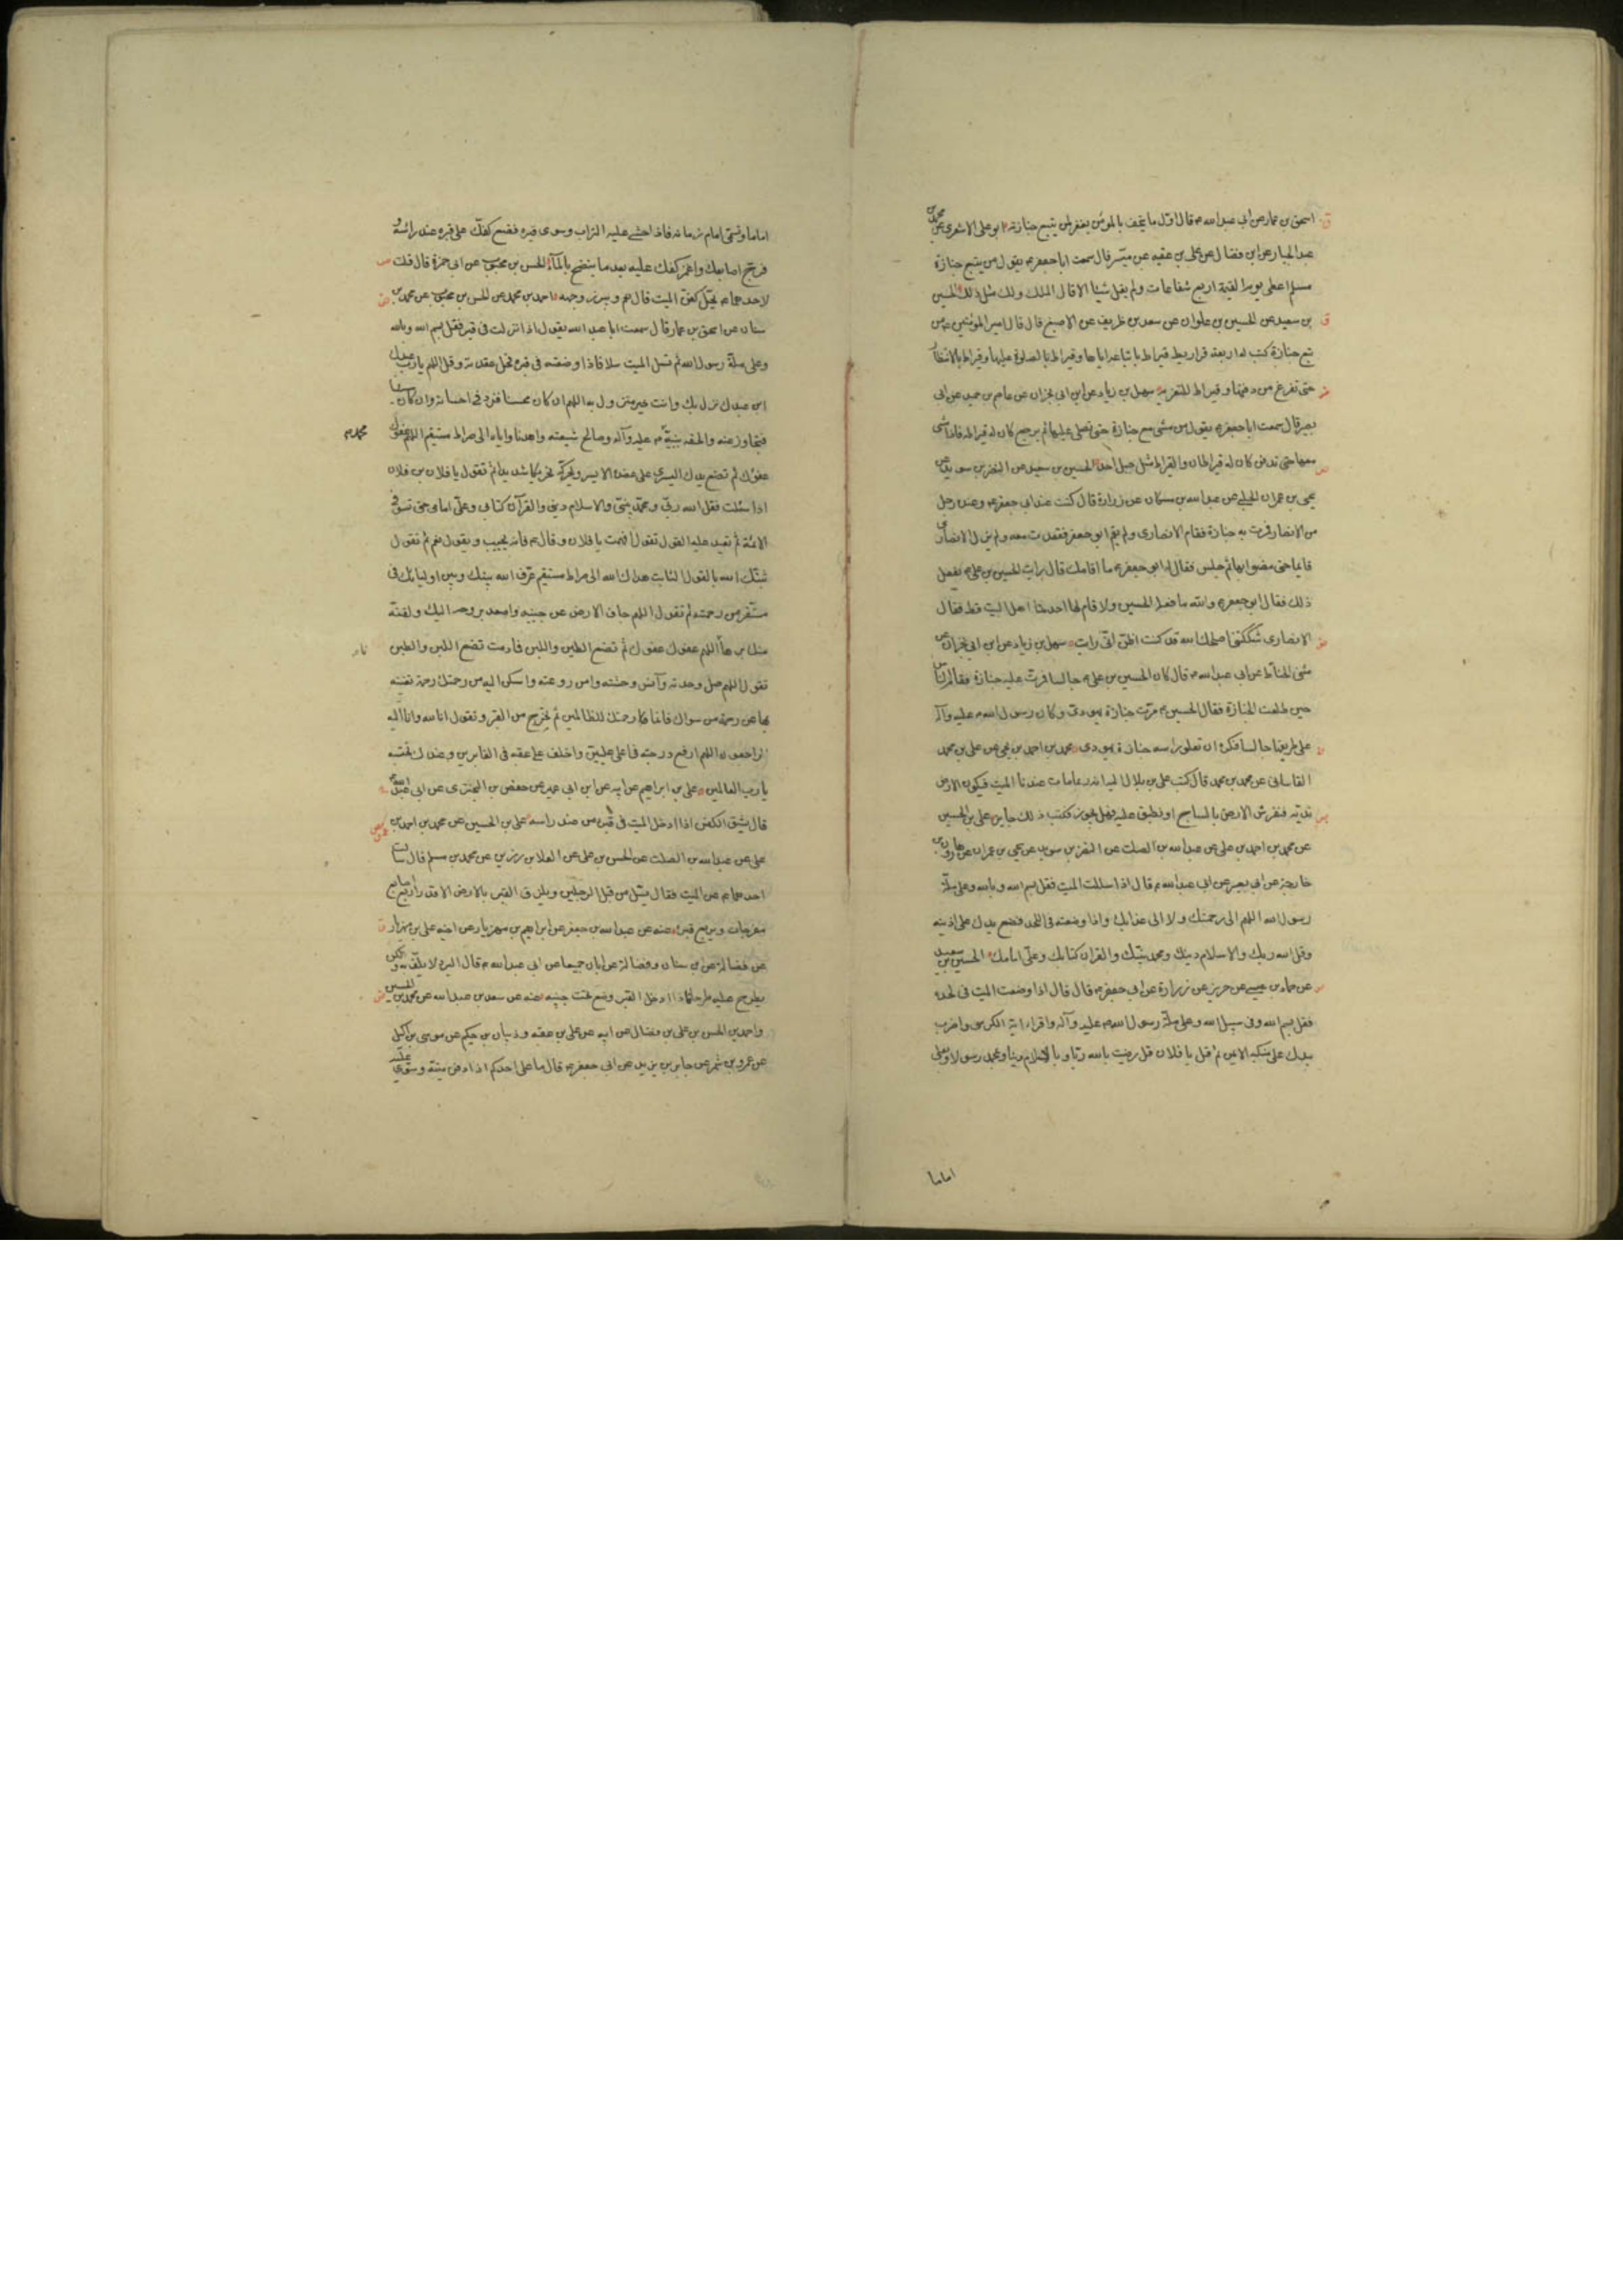 اسحق بن عمار عن ابي عبد الله ع قال اول ما يتحف به المؤمن يغفر لمن يتبع جنازته ابو علي الاشعري عن محمد بن
عبد الجبار عن ابن فضال عن علي بن عقبه عن ميسر قال سمعت ابا جعفر ع يقول من يتبع جنازة
مسلم اعطي يوم القيمة اربع شفاعات ولم يقل شيئا الا قال الملك ولك مثل ذلك الحسين
بن سعيد عن الحسين بن علوان عن سعد بن طريف عن الاصبغ قال قال امير المؤمنين ع من
تبع جنازة كتب له اربعة قراريط قيراط باتباعه اياها وقيراط بالصلوة عليها وقيراط بالانتظار
حتى تفرغ من دفنها وقيراط للتعزية سهل بن زياد عن ابن ابي نجران عن عاصم بن حميد عن ابي
بصير قال سمعت ابا جعفر ع يقول من مشى مع جنازة حتى تصلى عليها ثم يرجع كان له قيراط فاذا مشى
معها حتى تدفن كان له قيراطان والقيراط مثل جبل احد الحسين بن سعيد عن النضر بن سويد عن
يحيى بن عمران الحلبي عن عبد الله بن مسكان عن زرارة قال كنت عند ابي جعفر ع وعنده رجل
من الانصار فمرت به جنازة فقام الانصاري ولم يقم ابو جعفر فقعدت معه ولم يزل الانصاري
قائما حتى مضوا بها ثم جلس فقال له ابو جعفر ع ما اقامك قال رايت الحسين بن علي ع يفعل
ذلك فقال ابو جعفر ع والله ما فعله الحسين ولا قام لها احد منا اهل البيت قط فقال
الانصاري شككتني اصلحك الله قد كنت اظن اني رايت سهل بن زياد عن ابن ابي نجران عن
مثنى الحناط عن ابي عبد الله ع قال كان الحسين بن علي ع جالسا فمرت عليه جنازة فقام الناس
حين طلعت الجنازة فقال الحسين ع مرت جنازة يهودي وكان رسول الله ص عليه وآله
على طريقها جالسا فكره ان تعلو راسه جنازة يهودي محمد بن احمد بن يحيى عن علي بن محمد
القاساني عن محمد بن محمد قال كتب علي بن بلال اليه انه ربما مات عندنا الميت فيكون الارض
ندية فنفرش الارض بالساج او نطبق عليه فهل يجوز فكتب ذلك جايز علي بن الحسين
عن محمد بن احمد بن علي عن عبد الله بن الصلت عن النضر بن سويد عن يحيى بن عمران عن هارون بن
خارجة عن ابي بصير عن ابي عبد الله ع قال اذا سللت الميت فقل بسم الله وبالله وعلى ملة
رسول الله اللهم الى رحمتك ولا الى عذابك واذا وضعته في اللحد فضع يدك على اذنيه
وقل الله ربك والاسلام دينك ومحمد نبيك والقران كتابك وعلي امامك الحسين بن سعيد
عن حماد بن عيسى عن حريز عن زرارة عن ابي جعفر ع قال قال اذا وضعت الميت في لحده
فقل بسم الله وفي سبيل الله وعلى ملة رسول الله ص عليه وآله واقرا اية الكرسي واضرب
بيدك على منكبه الايمن ثم قل يا فلان قل رضيت بالله ربا وبالاسلام دينا وبمحمد رسولا وبعلي
اماما
اماما وتسمي امام زمانه فاذا حثي عليه التراب وسوى قبره فضع كفك على قبره عند رأسه و
فرج اصابعك واغمز كفك عليه بعد ما ينضح بالماء الحسن بن محبوب عن ابي حمزة قال قلت
لاحدهما ع يحل كفن الميت قال نعم ويبرز وجهه احمد بن محمد عن الحسن بن محبوب عن محمد بن
سنان عن اسحق بن عمار قال سمعت ابا عبد الله يقول اذا نزلت في قبر فقل بسم الله وبالله
وعلى ملة رسول الله ثم تسل الميت سلا فاذا وضعته في قبره فحل عقدته وقل اللهم يا رب عبدك
ابن عبدك نزل بك وانت خير منزول به اللهم ان كان محسنا فزد في احسانه وان كان مسيئا
فتجاوز عنه والحقه بنبيه ص عليه وآله وصالح شيعته واهدنا واياه الى صراط مستقيم اللهم عفوك
محمد ص
عفوك ثم تضع يدك اليسرى على عضده الايسر وتحركه تحريكا شديدا ثم تقول يا فلان بن فلان
اذا سئلت فقل الله ربي ومحمد نبيي والاسلام ديني والقرآن كتابي وعلي امامي حتى تسوق
الائمة ثم تعيد عليه القول ثم تقول افهمت يا فلان وقال ع فانه يجيب ويقول نعم ثم تقول
ثبتك الله بالقول الثابت هداك الله الى صراط مستقيم عرف الله بينك وبين اوليائك في
مستقر من رحمته ثم تقول اللهم جاف الارض عن جنبيه واصعد بروحه اليك ولقنه
منك برهانا اللهم عفوك عفوك ثم تضع الطين واللبن فما دمت تضع اللبن والطين
تقول اللهم صل وحدته وآنس وحشته وامن روعته واسكن اليه من رحمتك رحمة تغنيه
بها عن رحمة من سواك فانما رحمتك للظالمين ثم تخرج من القبر وتقول انا لله وانا اليه
راجعون اللهم ارفع درجته في اعلى عليين واخلف على عقبه في الغابرين وعندك نحتسبه
يا رب العالمين علي بن ابراهيم عن ابيه عن ابن ابي عمير عن حفص بن البختري عن ابي عبد الله
قال يشق الكفن اذا ادخل الميت في قبره من عند راسه علي بن الحسين عن محمد بن احمد بن
علي عن عبد الله بن الصلت عن الحسن بن علي عن العلا بن رزين عن محمد بن مسلم قال سالت
احدهما ع عن الميت فقال يسل من قبل الرجلين ويلزق القبر بالارض الا قدر اربع اصابع
مفرجات ويربع قبره عنه عن عبد الله بن جعفر عن ابراهيم بن مهزيار عن اخيه علي بن مهزيار
عن فضالة عن ابن سنان وفضالة عن ابان جميعا عن ابي عبد الله ع قال البرد لا يلف به ولكن
يطرح عليه طرحا فاذا ادخل القبر وضع تحت جنبه عنه عن سعد بن عبد الله عن محمد بن الحسين
واحمد بن الحسن بن علي بن فضال عن ابيه عن علي بن عقبه وذبيان بن حكيم عن موسى بن اكيل
عن عمرو بن شمر عن جابر بن يزيد عن ابي جعفر ع قال ما على احدكم اذا دفن ميته وسوى عليه